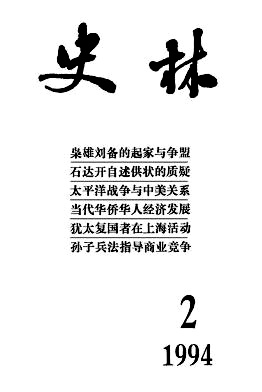 史林
枭雄刘备的起家与争盟
石达开自述供状的质疑
太平洋战争与中美关系
当代华侨华人经济发展
犹太复国者在上海活动
孙子兵法指导商业竞争
2
1994